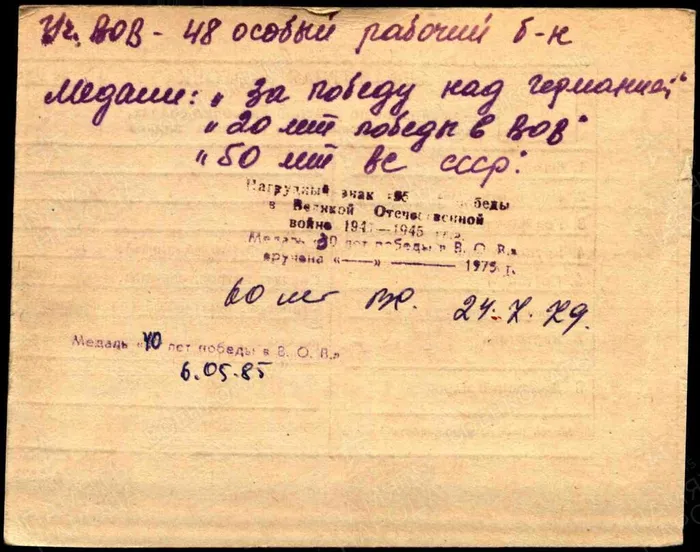 Уч. ВОВ - 48 особый рабочий б-н
Медали: „За победу над Германией“
„20 лет победы в ВОВ“
„50 лет ВС СССР“
Нагрудный знак «25 победы
в Великой Отечественной
войне 1941—1945 гг.»
Медаль «30 лет победы в В. О. В.»
вручена «——» ———— 1975 г.
60 лет ВС. 24.X.79.
Медаль «40 лет победы в В. О. В.»
6.05.85